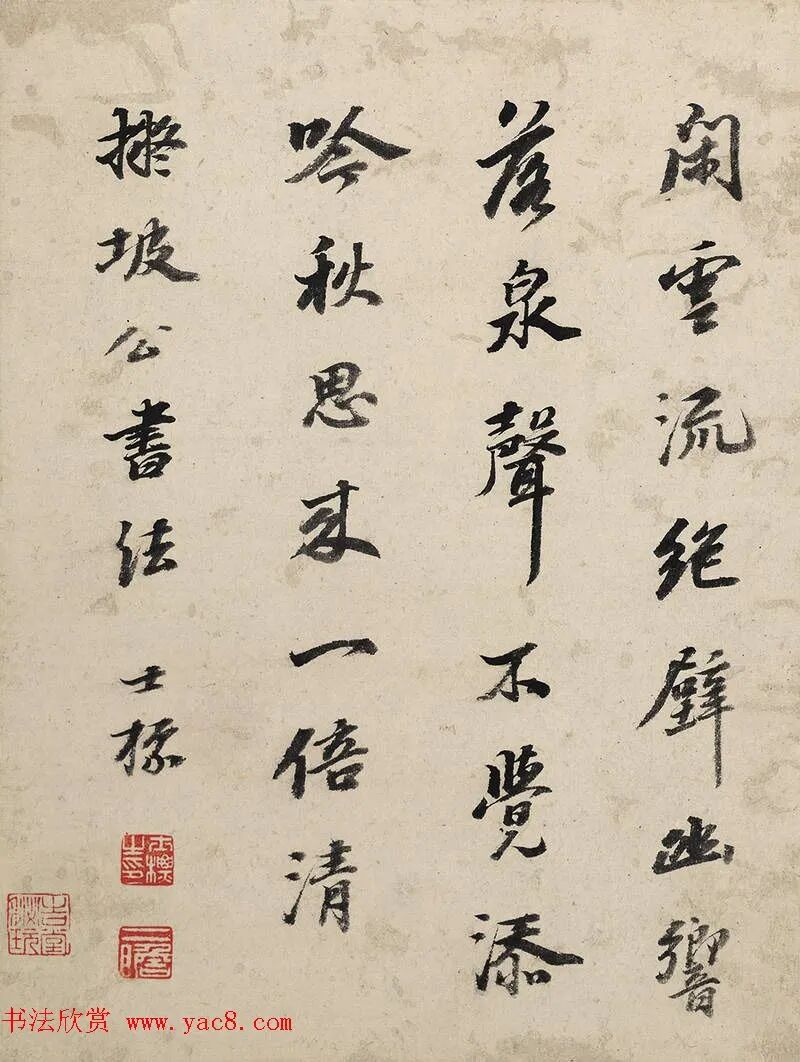 閑雲流絶壁幽響
落泉聲不覺添
吟秋思來一倍清
擬坡公書法 士標
書法欣赏 www.yac8.com